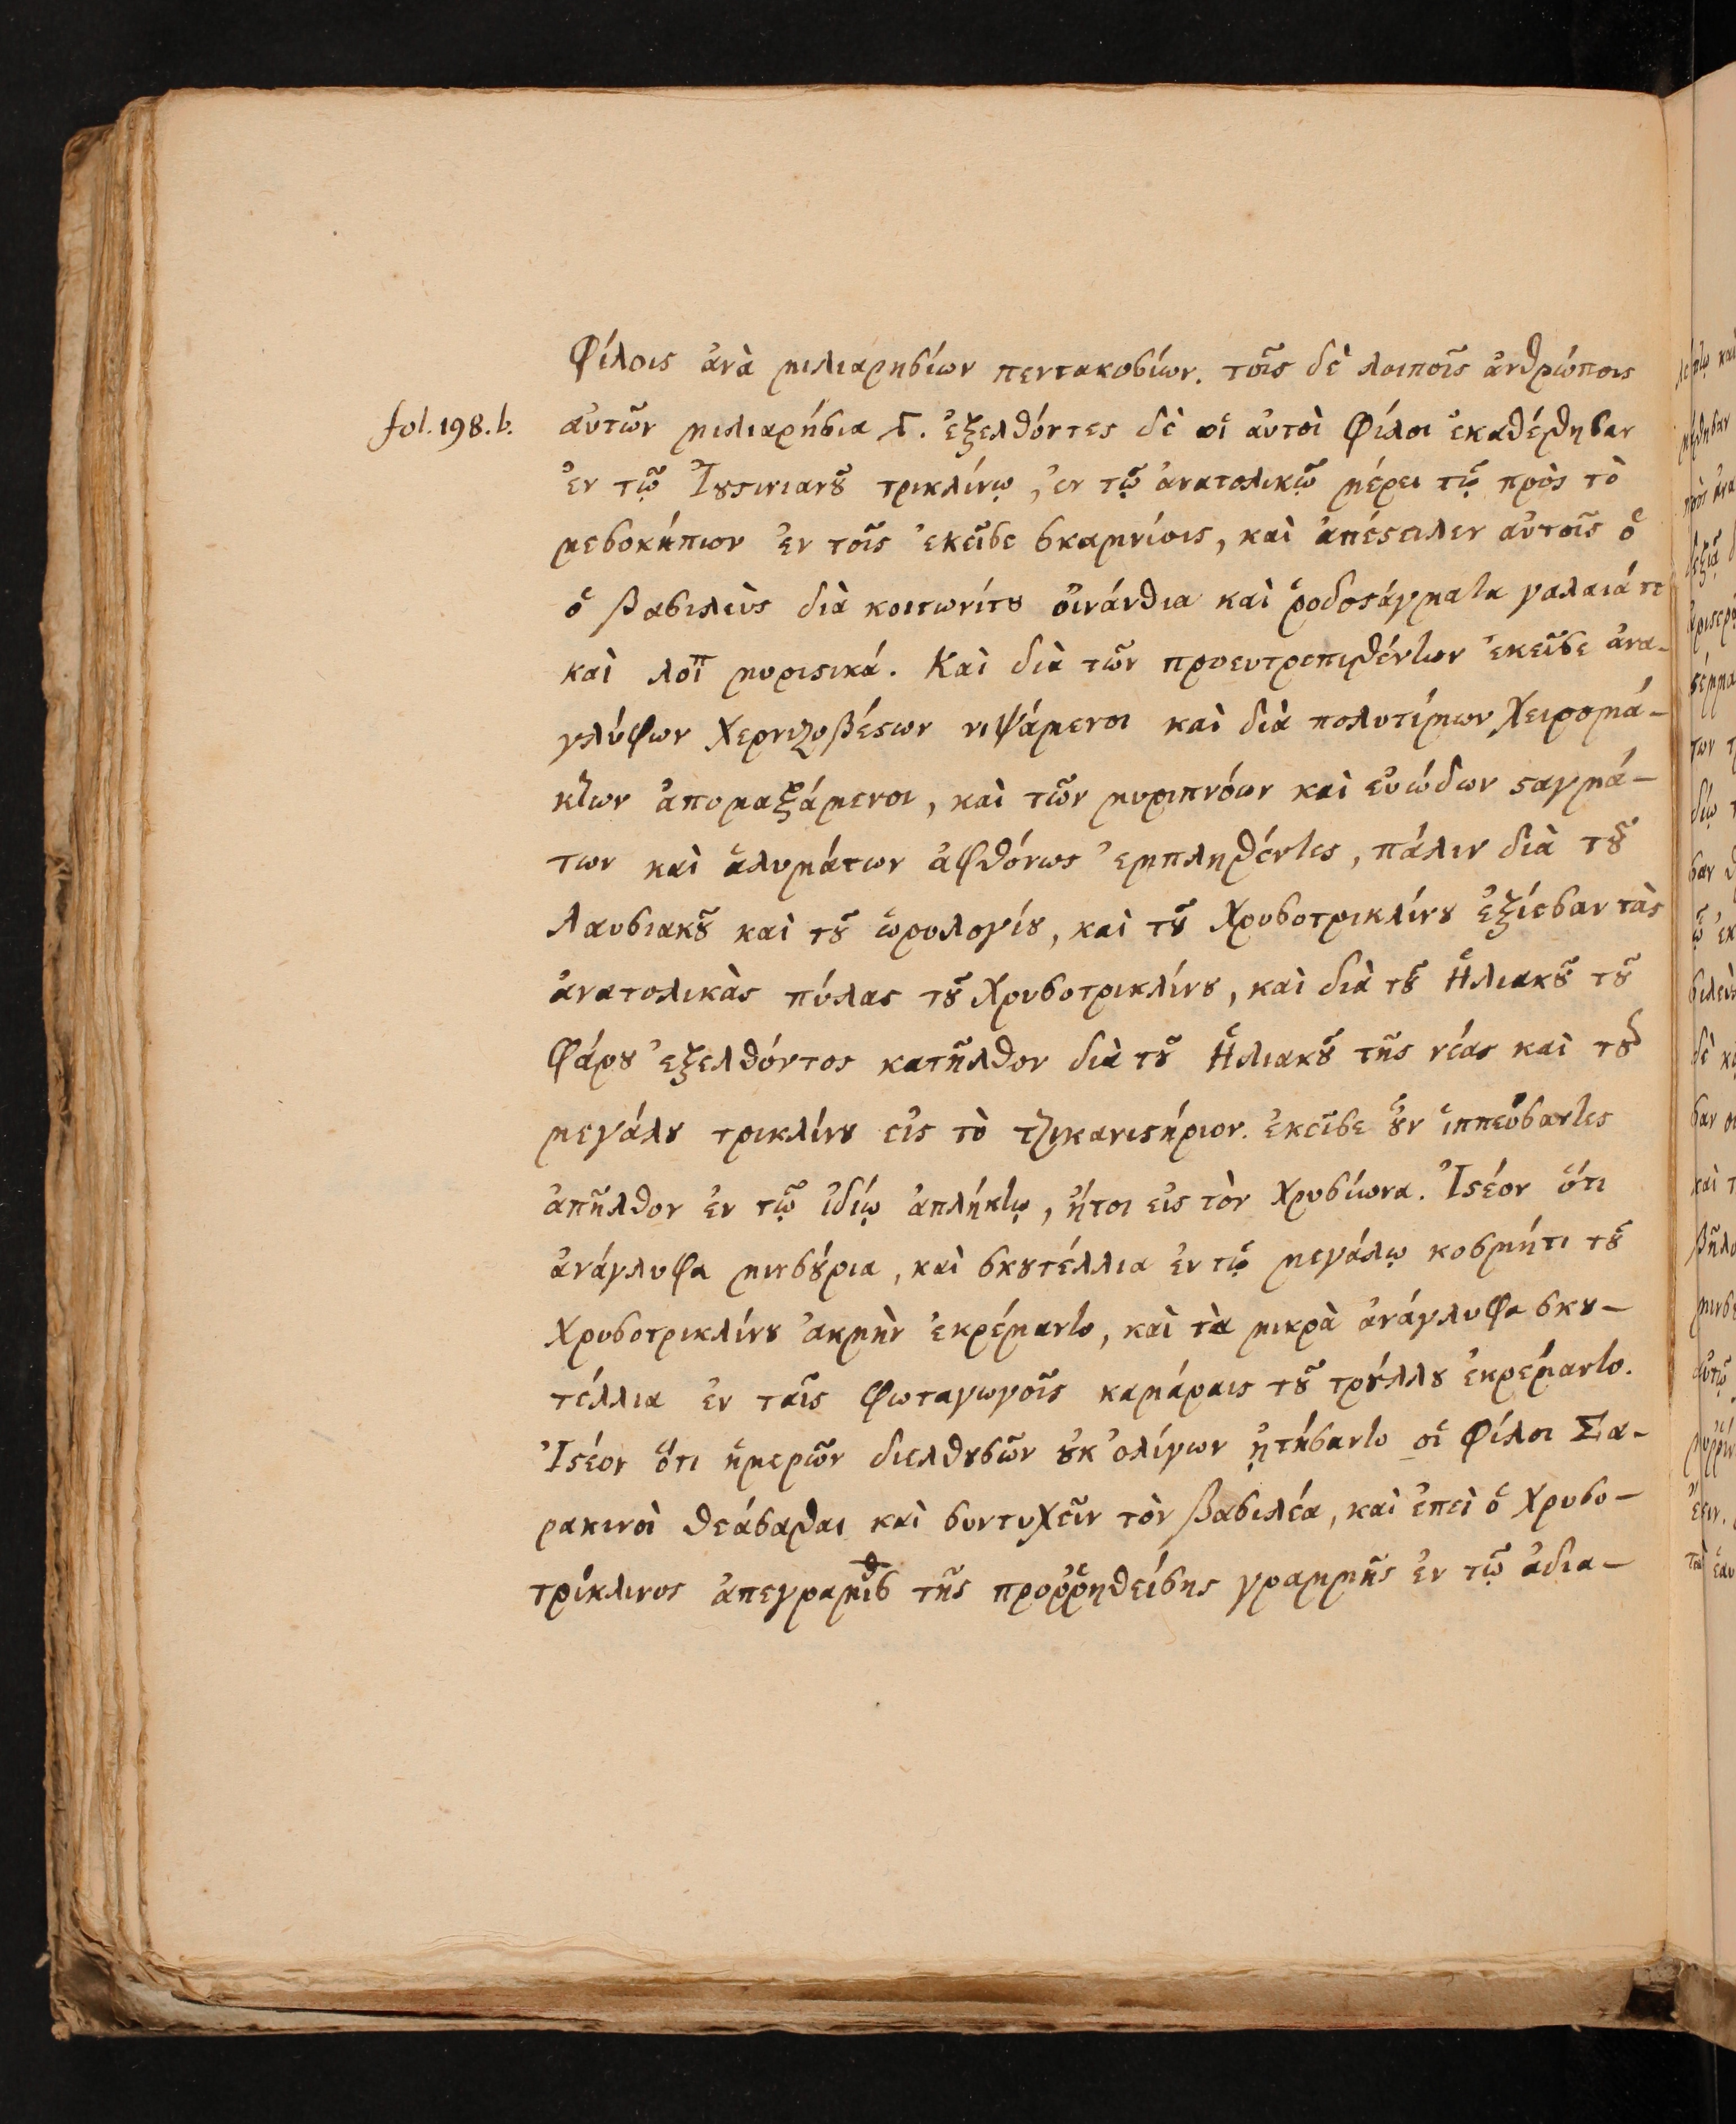 φίλοις ἀνὰ μιλιαρησίων πεντακοσίων. τοῖς δὲ λοιποῖς ἀνθρώποις
fol. 198. b. αὐτῶν μιλιαρήσια ͵Γ. ἐξελθόντες δὲ οἱ αὐτοὶ φίλοι ἐκαθέσθησαν
ἐν τῷ Ἰȣστινιανȣ͂ τρικλίνῳ, ἐν τῷ ἀνατολικῷ μέρει τῷ πρὸς τὸ
μεσοκήπιον ἐν τοῖς ἐκεῖσε σκαμνίοις, καὶ ἀπέϛειλεν αὐτοῖς ὁ
ὁ βασιλεὺς διὰ κοιτωνίτȣ οἰνάνθια καὶ ῥοδοϛάγματα γαλαιά τε
καὶ λοιπ μυριϛικά. Καὶ διὰ τῶν προευτρεπισθέντων ἐκεῖσε ἀνα-
γλύφων χερνιζοβέϛων νιψάμενοι καὶ διὰ πολυτίμων χειρομά-
κτων ἀπομαξάμενοι, καὶ τῶν μυριπνόων καὶ εὐώδων ϛαγμά-
των καὶ ἀλυμάτων ἀφθόνως ἐμπλησθέντες, πάλιν διὰ τȣ͂
Λαυσιακȣ͂ καὶ τȣ͂ ὡρολογίȣ, καὶ τȣ͂ Χρυσοτρικλίνȣ ἐξίεσαν τὰς
ἀνατολικὰς πύλας τȣ͂ Χρυσοτρικλίνȣ, καὶ διὰ τȣ͂ Ἡλιακȣ͂ τȣ͂
Φάρȣ ἐξελθόντος κατῆλθον διὰ τȣ͂ Ἡλιακȣ͂ τῆς νέας καὶ τȣ͂
μεγάλȣ τρικλίνȣ εἰς τὸ τζυκανιϛήριον. ἐκεῖσε ȣ̓͂ν ἱππεύσαντες
ἀπῆλθον ἐν τῷ ἰδίῳ ἀπλήκτῳ, ἤτοι εἰς τὸν Χρυσίωνα. Ἰϛέον ὅτι
ἀνάγλυφα μινσȣ́ρια, καὶ σκȣτέλλια ἐν τῷ μεγάλῳ κοσμήτι τȣ͂
Χρυσοτρικλίνȣ ἀκμὴν ἐκρέμαντο, καὶ τὰ μικρὰ ἀνάγλυφα σκȣ-
τέλλια ἐν ταῖς φωταγωγοῖς καμάραις τȣ͂ τρȣ́λλȣ ἐκρέμαντο.
Ἰϛέον ὅτι ἡμερῶν διελθȣσῶν ȣ̓κ ὀλίγων ᾐτήσαντο οἱ φίλοι Σα-
ρακινοὶ θεάσασθαι καὶ συντυχεῖν τὸν βασιλέα, καὶ ἐπεὶ ὁ Χρυσο-
τρίκλινος τῆς προῤῥηθείσης γραμμῆς ἐν τῷ ἀδια-